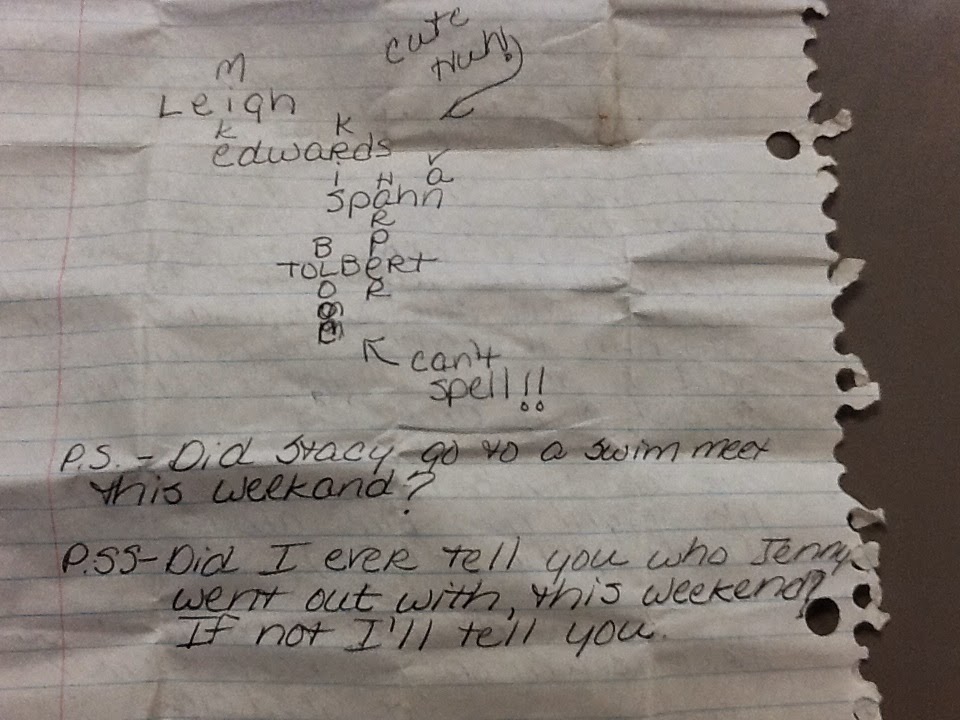 cute
Huh!
M
Leigh
K K
edwaRds
V
I H a
Spann
R
B P
TOLBeRT
O R
can't
spell!!
P.S. - Did Stacy go to a swim meet
this weekand?
P.SS - Did I ever tell you who Jenny
went out with, this weekend?
If not I'll tell you.